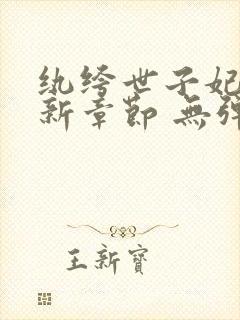 纨绔世子妃
新章節 無彈
王新寶